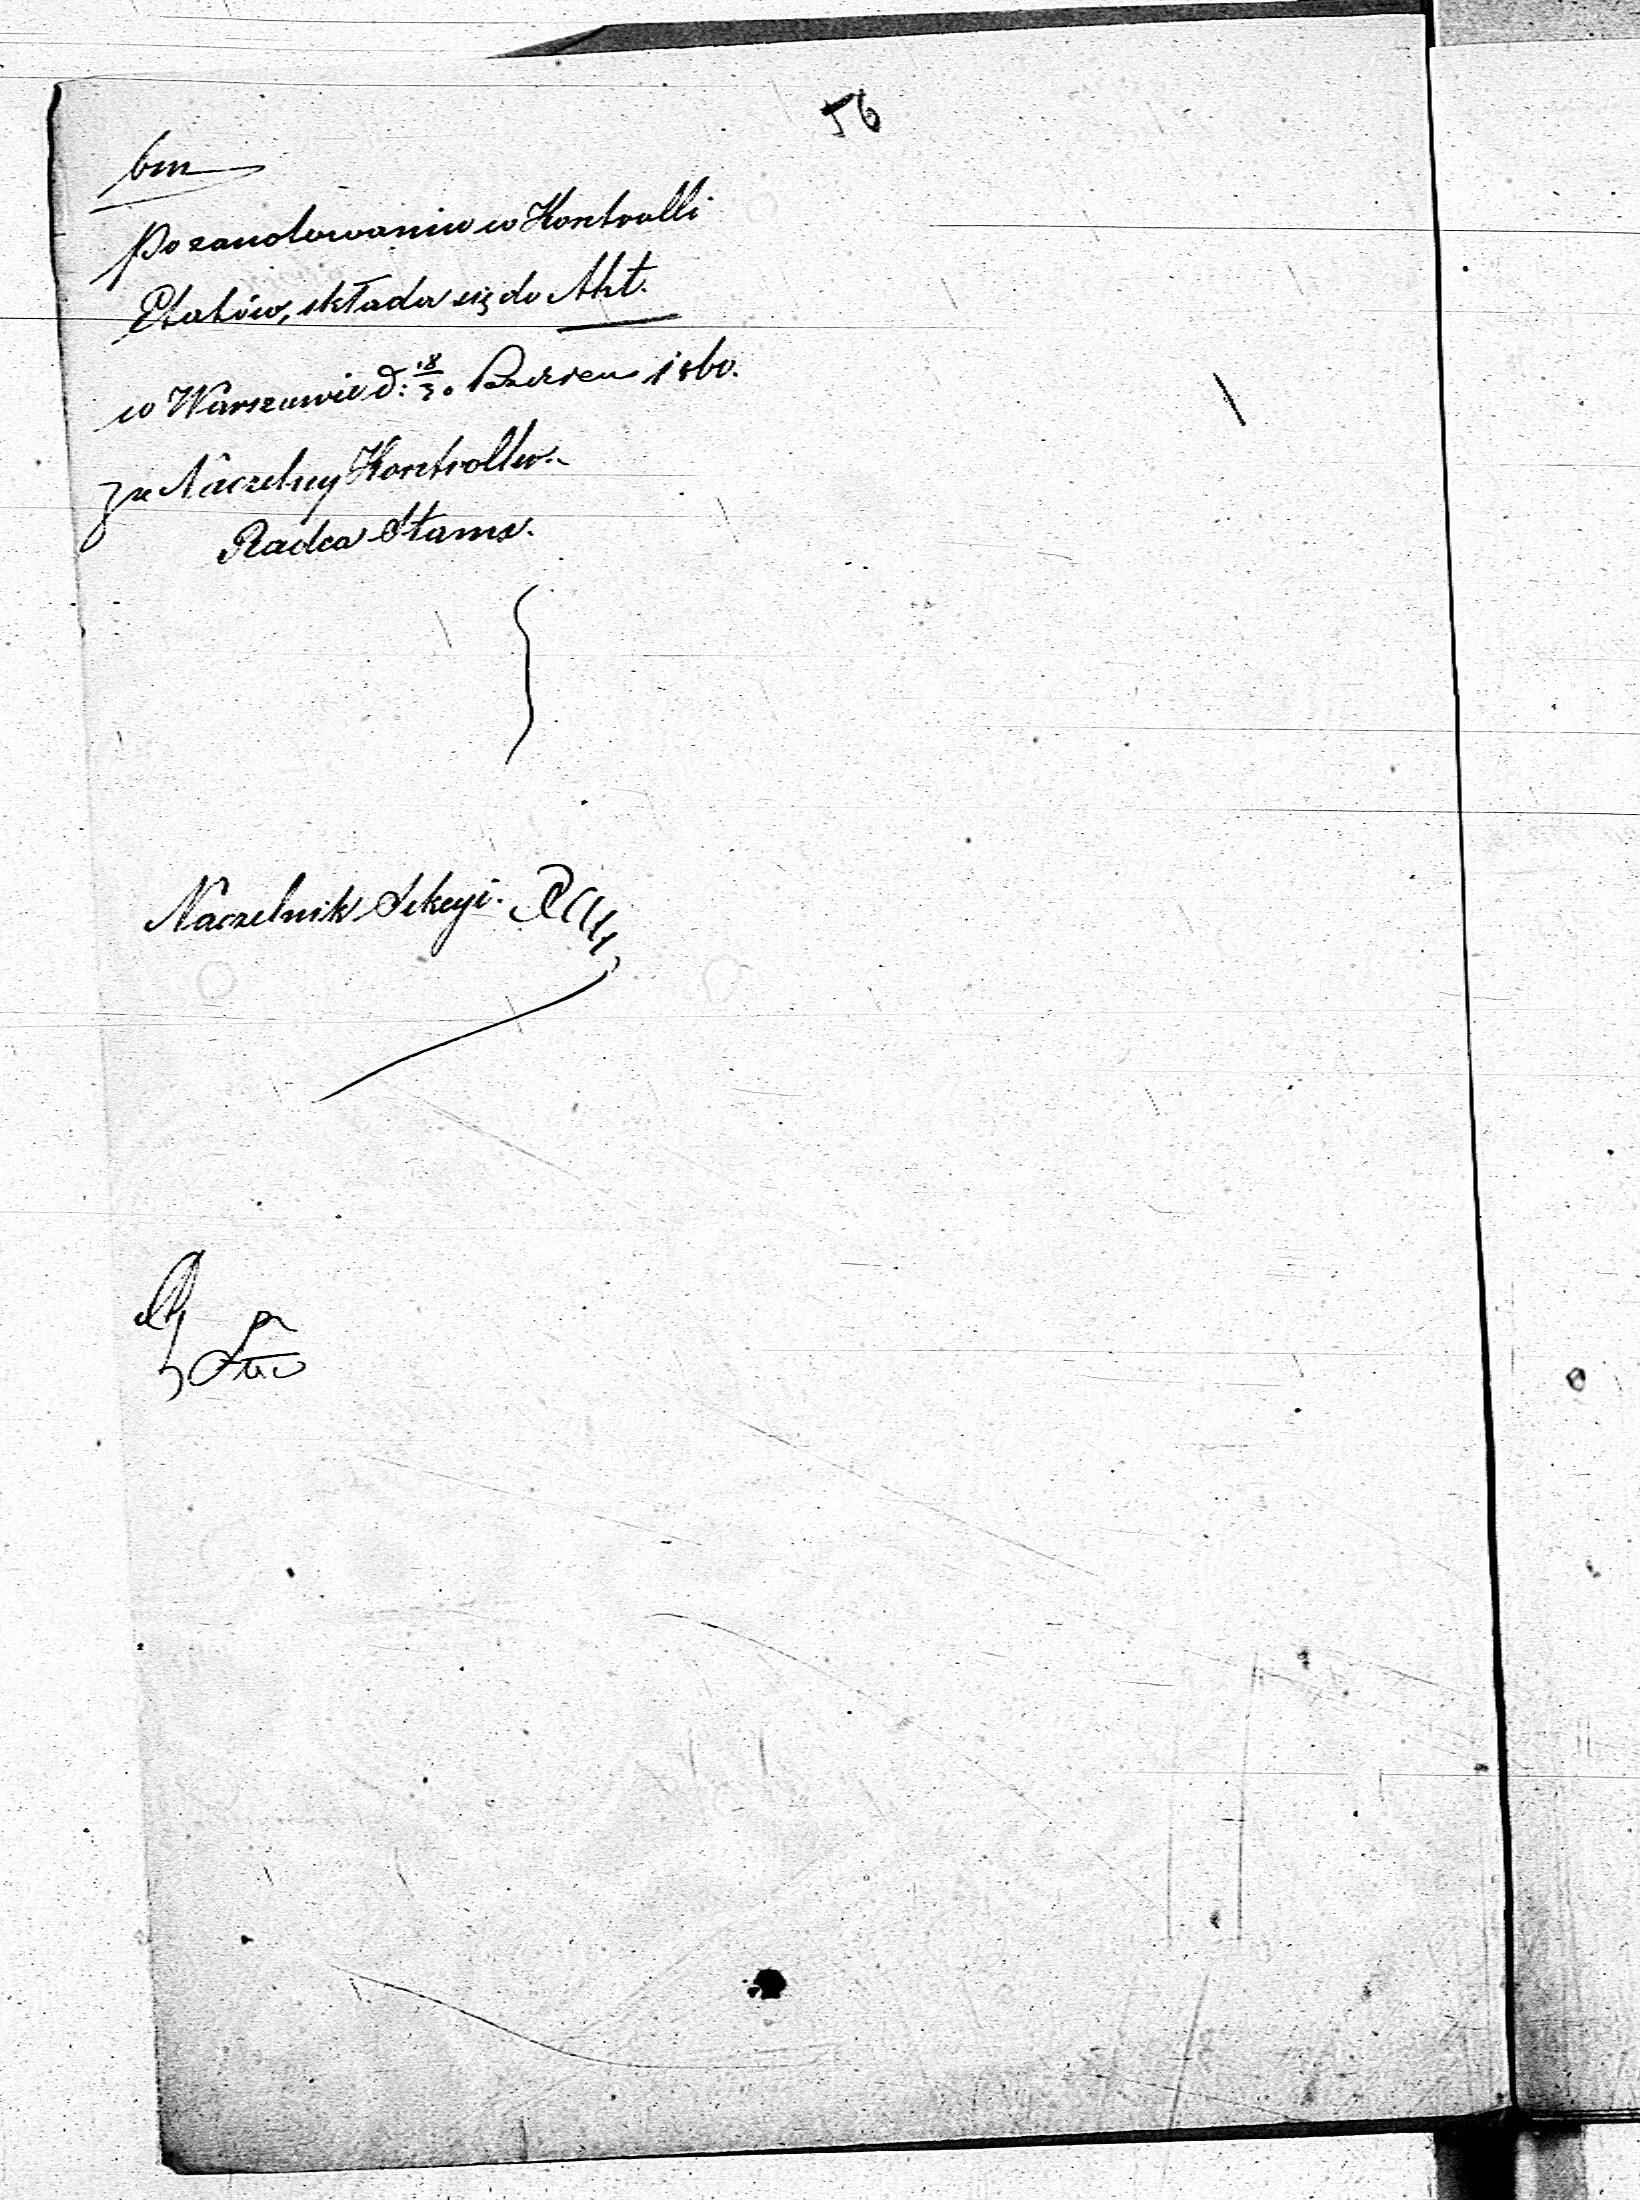 56
bm
Po zanotowaniu w Kontrolli
Etatów, składa się do Akt.
w Warszawie d: 18/30 Paździer 1860.
za Naczelny Kontroller.
Radca Stanu.
Naczelnik Sekcyi.